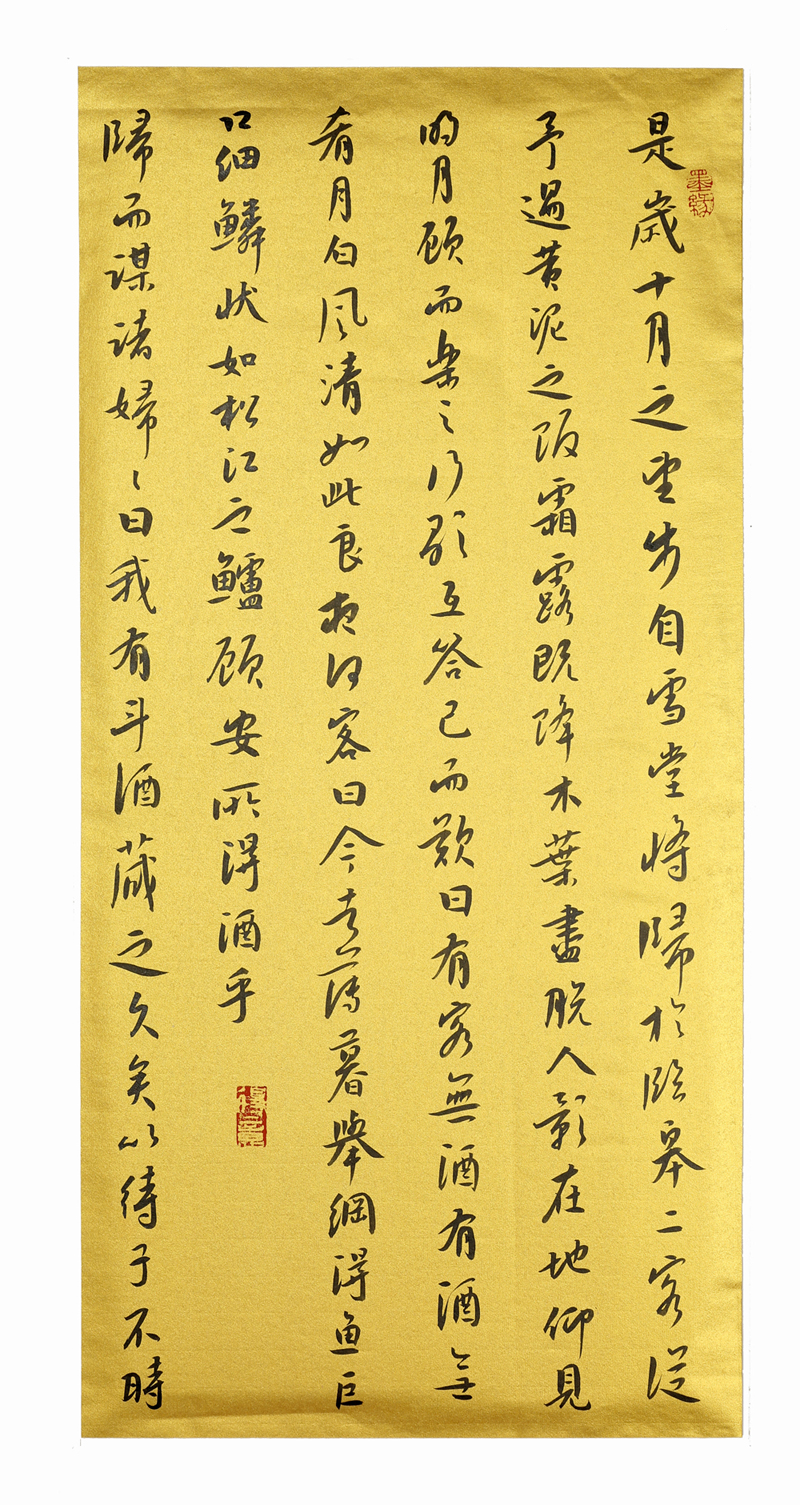 墨緣
是歲十月之望步自雪堂將歸於臨皋二客從
予過黄泥之阪霜露既降木葉盡脱人影在地仰見
明月顧而樂之行歌互答已而歎曰有客無酒有酒無
肴月白風清如此良夜何客曰今者薄暮舉網得魚巨
口細鱗狀如松江之鱸顧安所得酒乎
歸而謀諸婦〻曰我有斗酒藏之久矣以待子不時